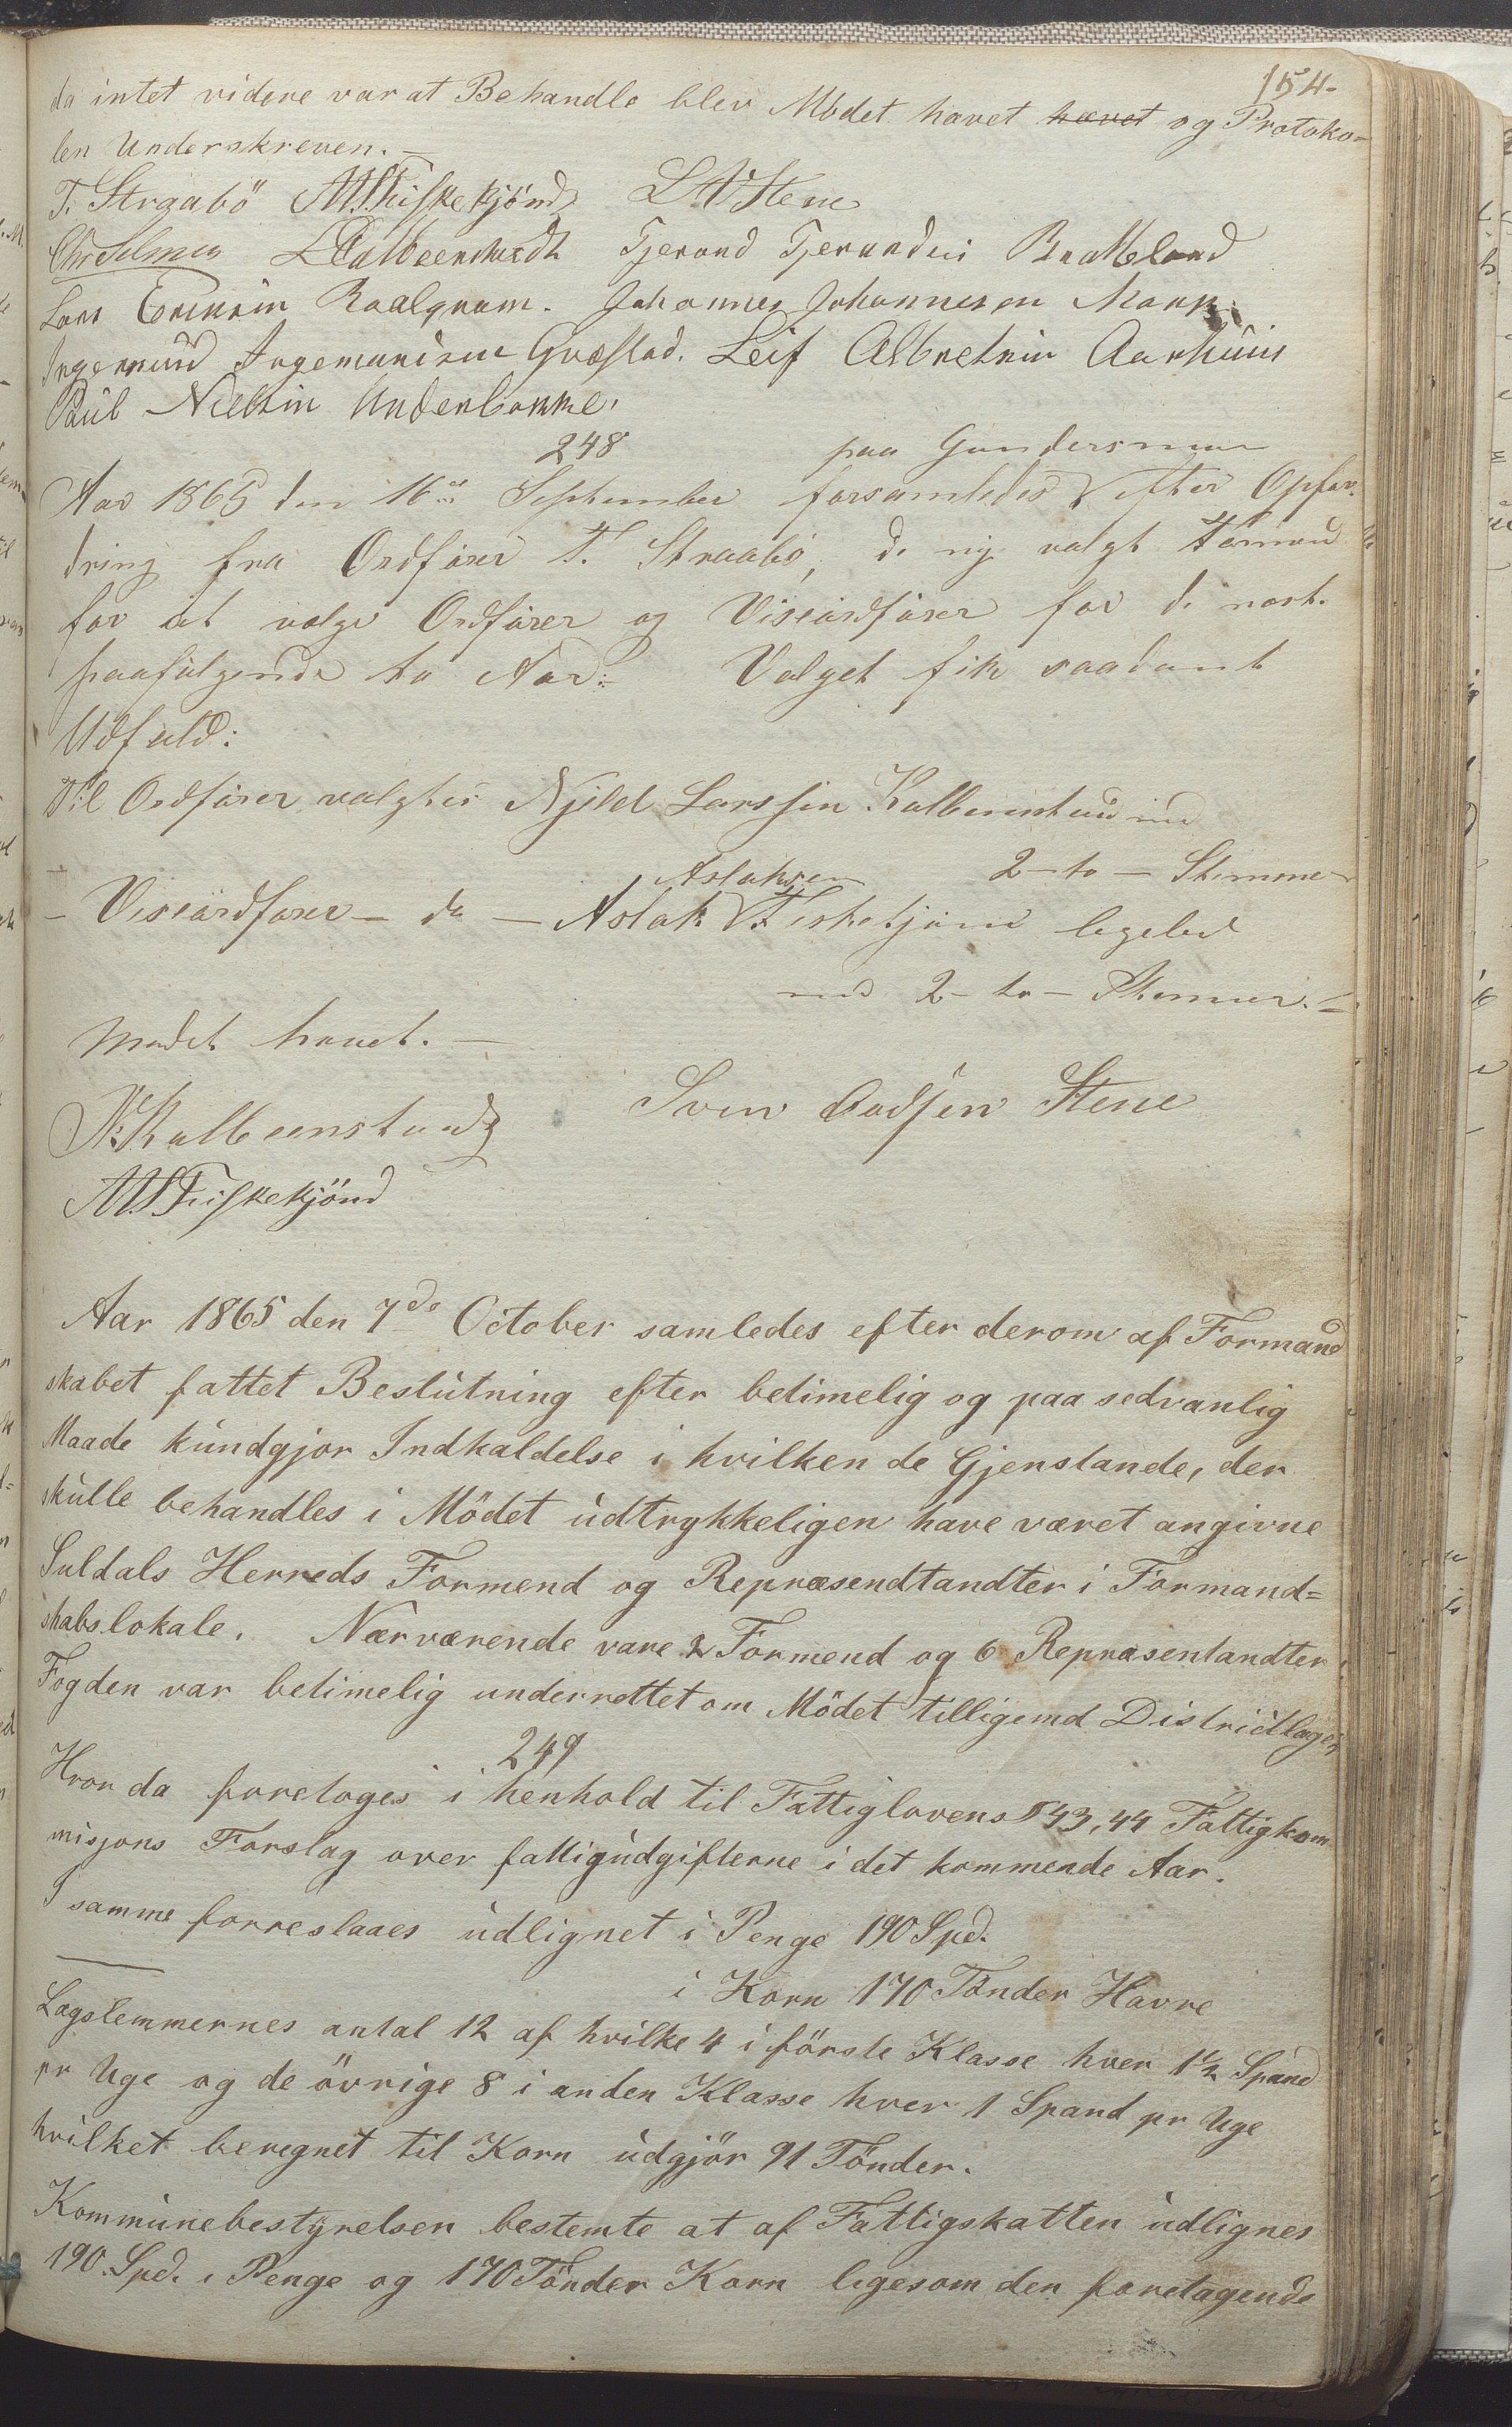 154-
da intet videre var at Behandle blev Mödet hævet hævet og Protoko-
len Underskreven. -
T. Straabö AAFiskekjönd LAStene
Chr Selmer LKalbeenstvedt Tjerand Tjerandsen Bratteland
Lars Eriksen Roalqvam. Johannes Johannesen Mork.
Ingemund Ingemundsen Gvæstad. Leif Albretsen Aarhuus
Paul Nielsen Underbakke.
248 paa Gundersmoe
Aar 1865 den 16de September forsamledes efter Opfor-
dring fra Ordförer T. Straabö, de ny valgt Formænd
for at vælge Ordförer og Viseordförer for de næst-
paafölgende to Aar:- Valget fik saadant
Udfald:
Til Ordförer valgtes Njeld Larssen Kalbenstud med
2 - to - Stemmer
- Viseordförer - do - Aslak Aslaksen Fiskekjönd ligeled
med 2 - to - Stemmer. -
Mödet hævet. -
N. Kalbeenstvedt Sven Oadsen Stene
AAFiskekjönd
Aar 1865 den 7de October samledes efter derom af Formand
skabet fattet Beslutning efter betimelig og paa sedvanlig
Maade kundgjor Indkaldelse i hvilken de Gjenstande, der
skulle behandles i Mödet udtrykkeligen have været angivne
Suldals Herreds Formend og Repræsendtandter i Formand=
skabslokale. Nærværende vare 2 Formend og 6 Repræsentandter
Fogden var betimelig underrettet om Mödet tilligemed Districtlagen
249
Hvor da foretoges i henhold til Fattiglovens § 43, 44 Fattigkom
misjons Forslag over fattigudgifterne i det kommende Aar.
I samme forreslaaes udlignet i Penge 190 Spd.
i Korn 170 Tönder Havre
Lægslemmernes antal 12 af hvilke 4 i förste Klasse hver 1½ Spand
pr Uge og de övrige 8 i anden Klasse hver 1 Spand pr Uge
hvilket beregnet til Korn udgjör 91 Tönder.
Kommunebestyrelsen bestemte at af Fattigskatten udlignes
190 Spd. i Penge og 170 Tönder Korn ligesom den foretagende